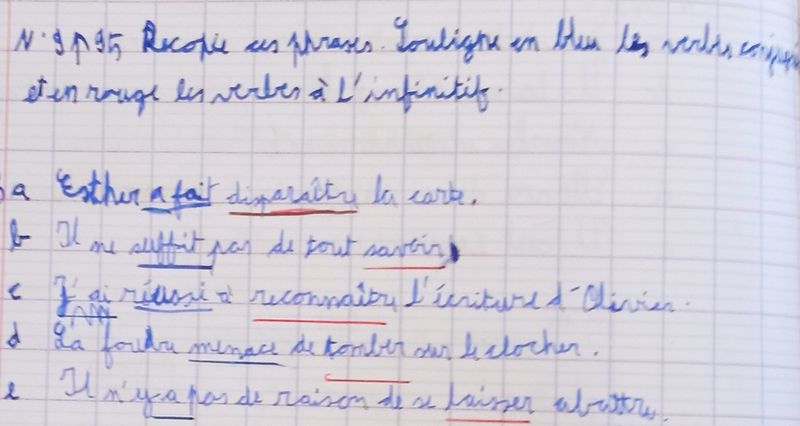 N° 9 P 95 Recopie ces phrases. Souligne en bleu les verbes
et en rouge les verbes à L'infinitif.
a Esther a fait disparaître la carte.
b Il ne suffit pas de tout savoir
c J'ai réussi à reconnaître l'écriture d'Olivier.
d La foudre menace de tomber sur le clocher.
e Il n'y a pas de raison de se laisser abattre.